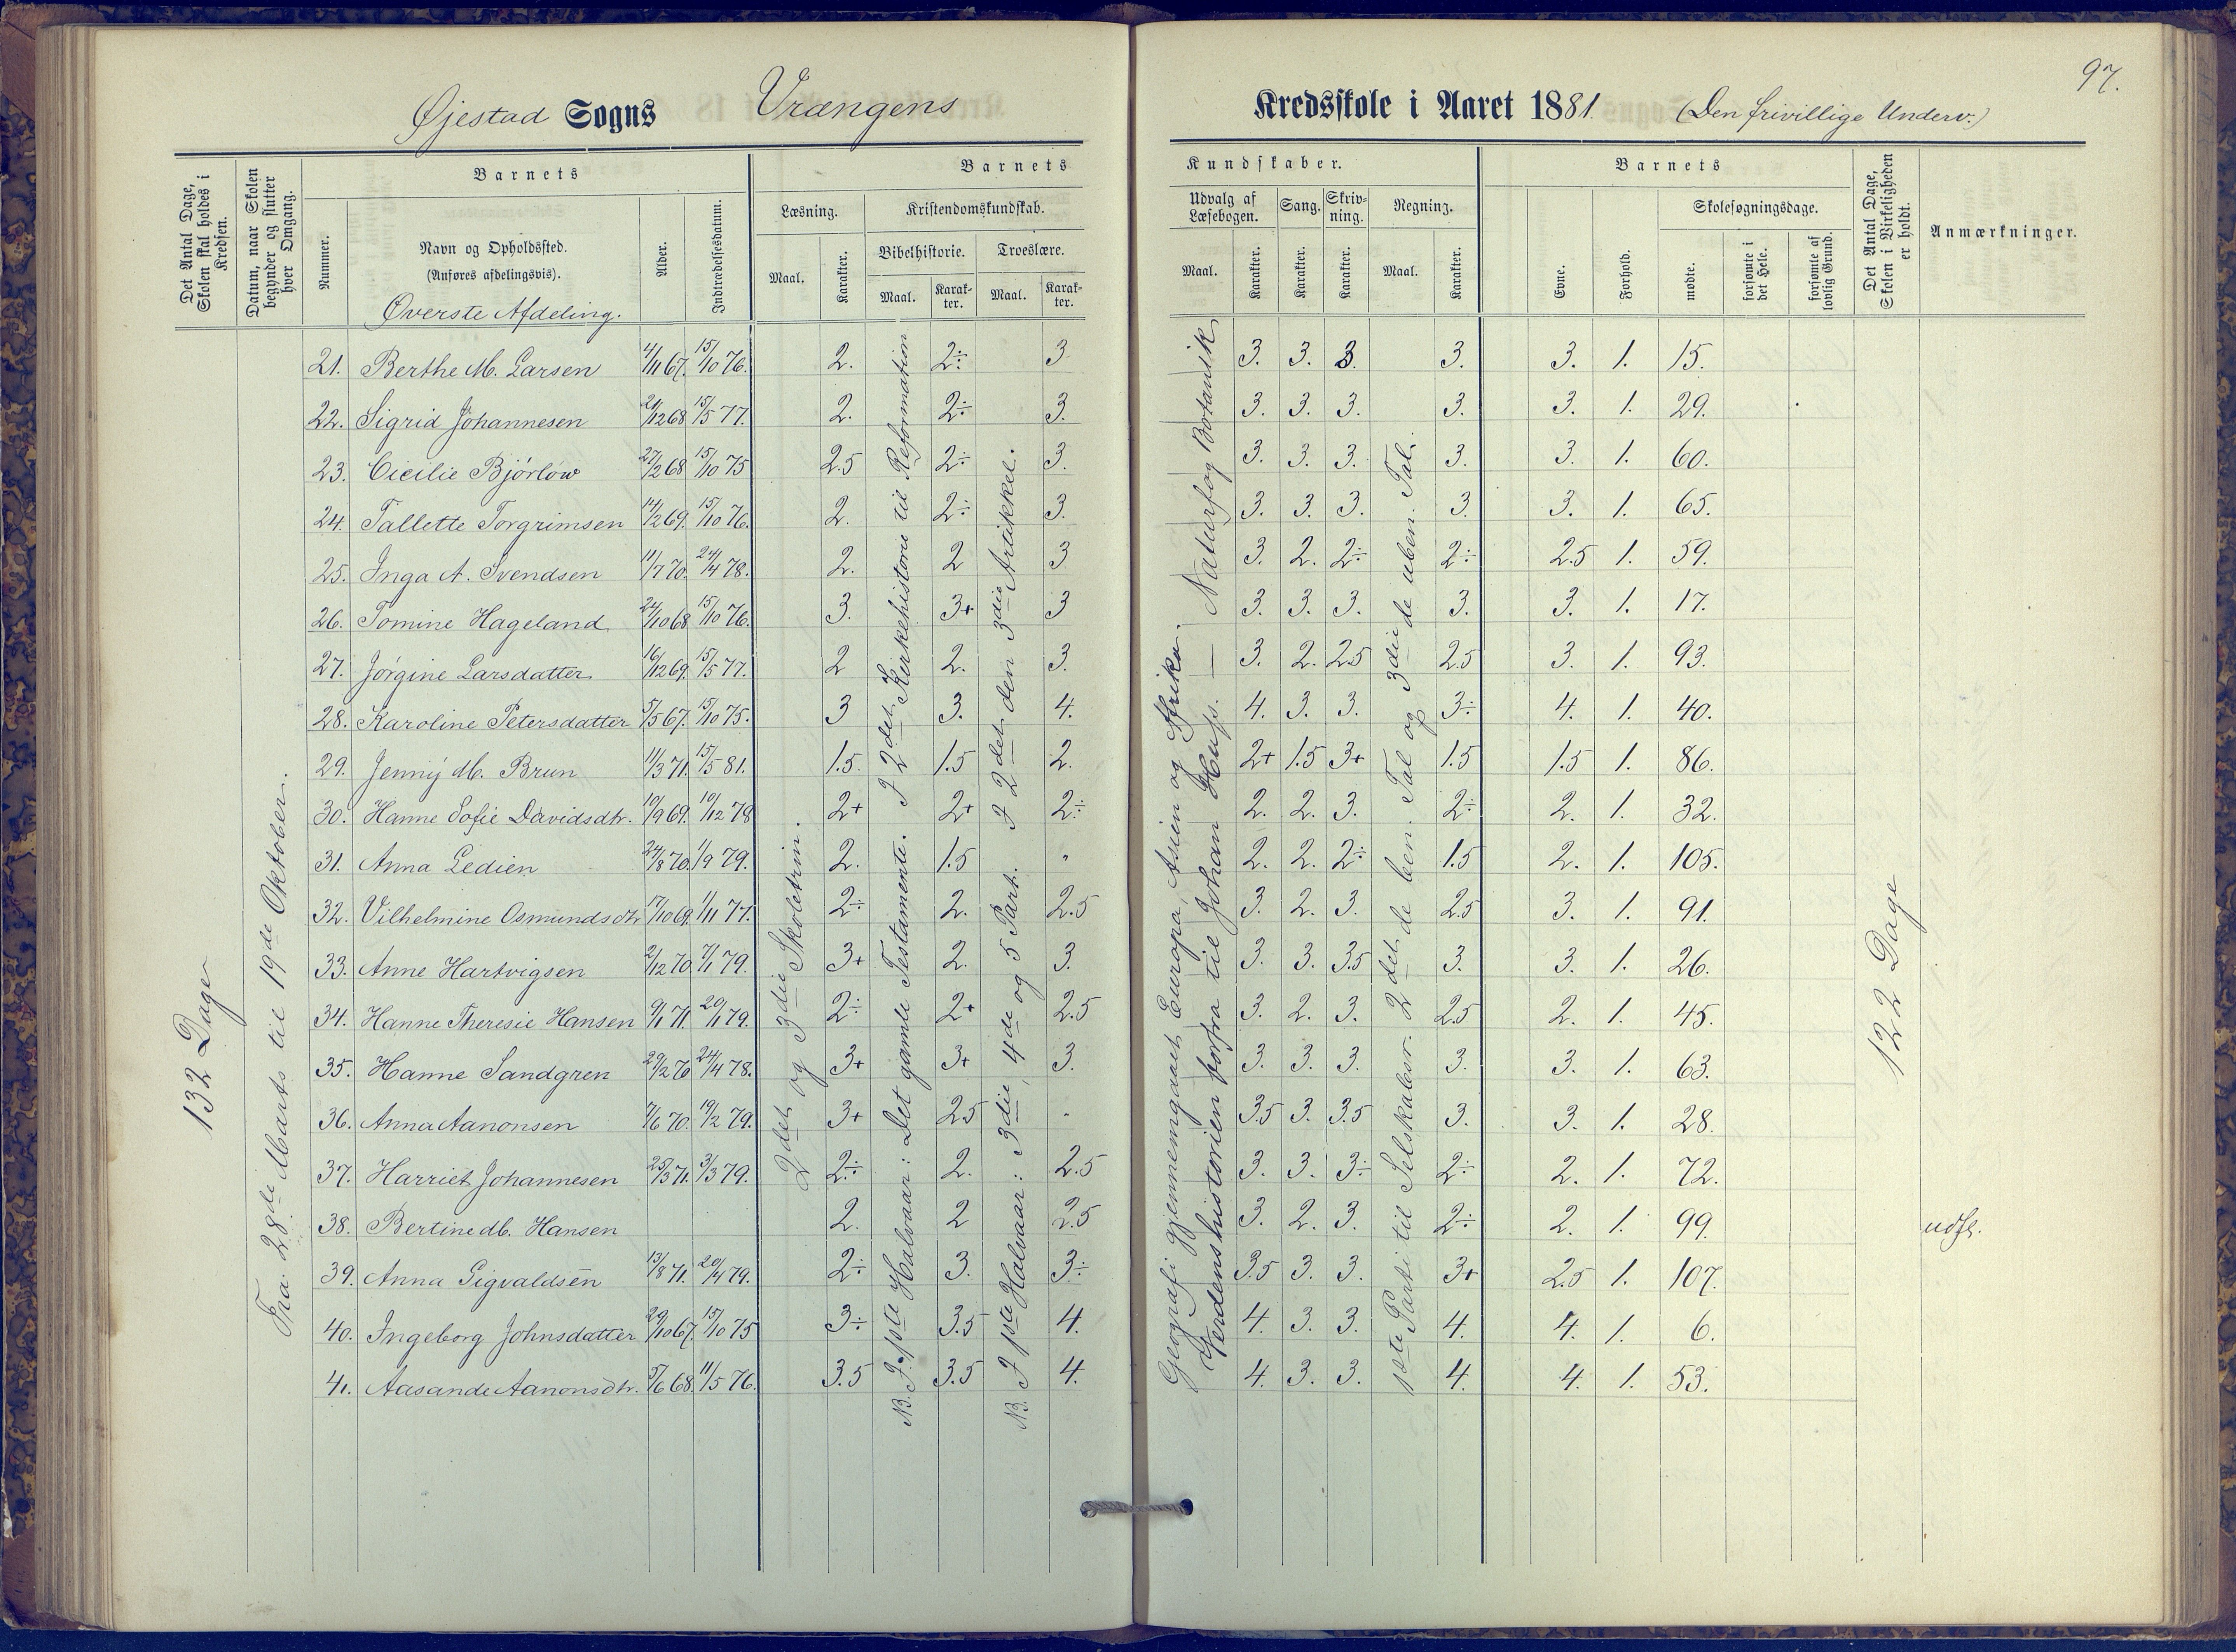 97.
Øjestad Sogns Vrængens Kredsskole i Aaret 1881. (Den frivillige Underv.)
Det Antal Dage, Skolen skal holdes i Kredsen.
Datum, naar Skolen begynder og slutter hver Omgang.
Barnets
Nummer.
Navn og Opholdssted.
(Anføres afdelingsvis).
Øverste Afdeling.
Alder.
Indtrædelsesdatum.
Barnets Kundskaber.
Læsning.
Maal.
Karakter.
Kristendomskundskab.
Bibelhistorie.
Maal.
Karakter.
Troeslære.
Maal.
Karakter.
Udvalg af Læsebogen.
Maal.
Karakter.
Sang.
Karakter.
Skrivning.
Karakter.
Regning.
Maal.
Karakter.
Barnets
Evne.
Forhold.
Skolesøgningsdage.
mødte.
forsømte i det Hele.
forsømte af lovlig Grund.
Det Antal Dage, Skolen i Virkeligheden er holdt.
Anmærkninger.
132 Dage
Fra 28de Marts til 19de Oktober.
2det og 3die Skoletrin.
N.B. I 1ste Halvaar: Det gamle Testamente. I 2det Kirkehistorie til Reformation
N.B. I 1ste Halvaar: 3die, 4de og 5 Part. I 2det den 3die Artikkel.
Geografi gjennemgaaet Europa, Asien og Afrika. — Naturfag Botanik
Verdenshistorien forfra til Johan Huss. —
1ste Parti til Selskabsr. 2det de ben. Tal og 3die de uben. Tal.
122 Dage
21. Berthe M. Larsen 4/11 67. 15/10 76. 2. 2÷ 3 3. 3. 3. 3. 3. 1. 15.
22. Sigrid Johannesen 21/12 68 15/5 77. 2. 2÷ 3. 3. 3. 3. 3. 3. 1. 29.
23. Cicilie Bjørlow 27/2 68 15/10 75 2.5 2÷ 3. 3. 3. 3. 3. 3. 1. 60.
24. Tallette Torgrimsen 14/2 69. 15/10 76. 2. 2÷ 3. 3. 3. 3. 3. 3. 1. 65.
25. Inga A. Svendsen 11/7 70. 24/4 78. 2. 2 3 3. 2. 2÷ 2÷ 2.5 1. 59.
26. Tomine Hageland 24/10 68 15/10 76. 3. 3+ 3 3. 3. 3. 3. 3. 1. 17.
27. Jørgine Larsdatter 16/12 69. 15/5 77. 2 2. 3. 3. 2. 2.5 2.5 3. 1. 93.
28. Karoline Petersdatter 5/5 67. 15/10 75. 3 3. 4. 4. 3. 3. 3÷ 4. 1. 40.
29. Jenny M. Brun 11/3 71. 15/5 81. 1.5. 1.5 2. 2+ 1.5 3+ 1.5 1.5 1. 86.
30. Hanne Sofie Davidsdtr. 10/9 69. 10/12 78 2+ 2+ 2÷ 2. 2. 3. 2÷ 2. 1. 32.
31. Anna Ledien 24/8 70. 1/9 79. 2. 1.5 " 2. 2. 2÷ 1.5 2. 1. 105.
32. Vilhelmine Osmundsdtr 17/10 69. 1/11 77. 2÷ 2. 2.5 3. 2. 3. 2.5 3. 1. 91.
33. Anne Hartvigsen 2/12 70. 7/1 79. 3+ 2. 3. 3. 3. 3.5 3. 3. 1. 26.
34. Hanne Theresie Hansen 9/1 71. 20/1 79. 2÷ 2+ 2.5 3. 2. 3. 2.5 2. 1. 45.
35. Hanne Sandgren 29/2 70 24/4 78. 3+ 3+ 3. 3. 3. 3. 3. 3. 1. 63.
36. Anna Aanonsen 7/6 70. 19/2 79. 3+ 2.5 " 3.5 3. 3.5 3. 3. 1. 28.
37. Harriet Johannesen 25/3 71. 3/3 79. 2÷ 2. 2.5 3. 3. 3÷ 2÷ 2. 1. 72.
38. Bertine M. Hansen 2. 2 2.5 3. 2. 3. 2÷ 2. 1. 99. udfl.
39. Anna Sigvaldsen 13/8 71. 20/4 79. 2÷ 3. 3÷ 3.5 3. 3. 3+ 2.5 1. 107.
40. Ingeborg Johnsdatter 29/10 67. 15/10 75 3÷ 3.5 4. 4. 3. 3. 4. 4. 1. 6.
41. Aasande Aanonsdtr. 5/6 68. 11/5 76. 3.5 3.5 4. 4. 3. 3. 4. 4. 1. 53.